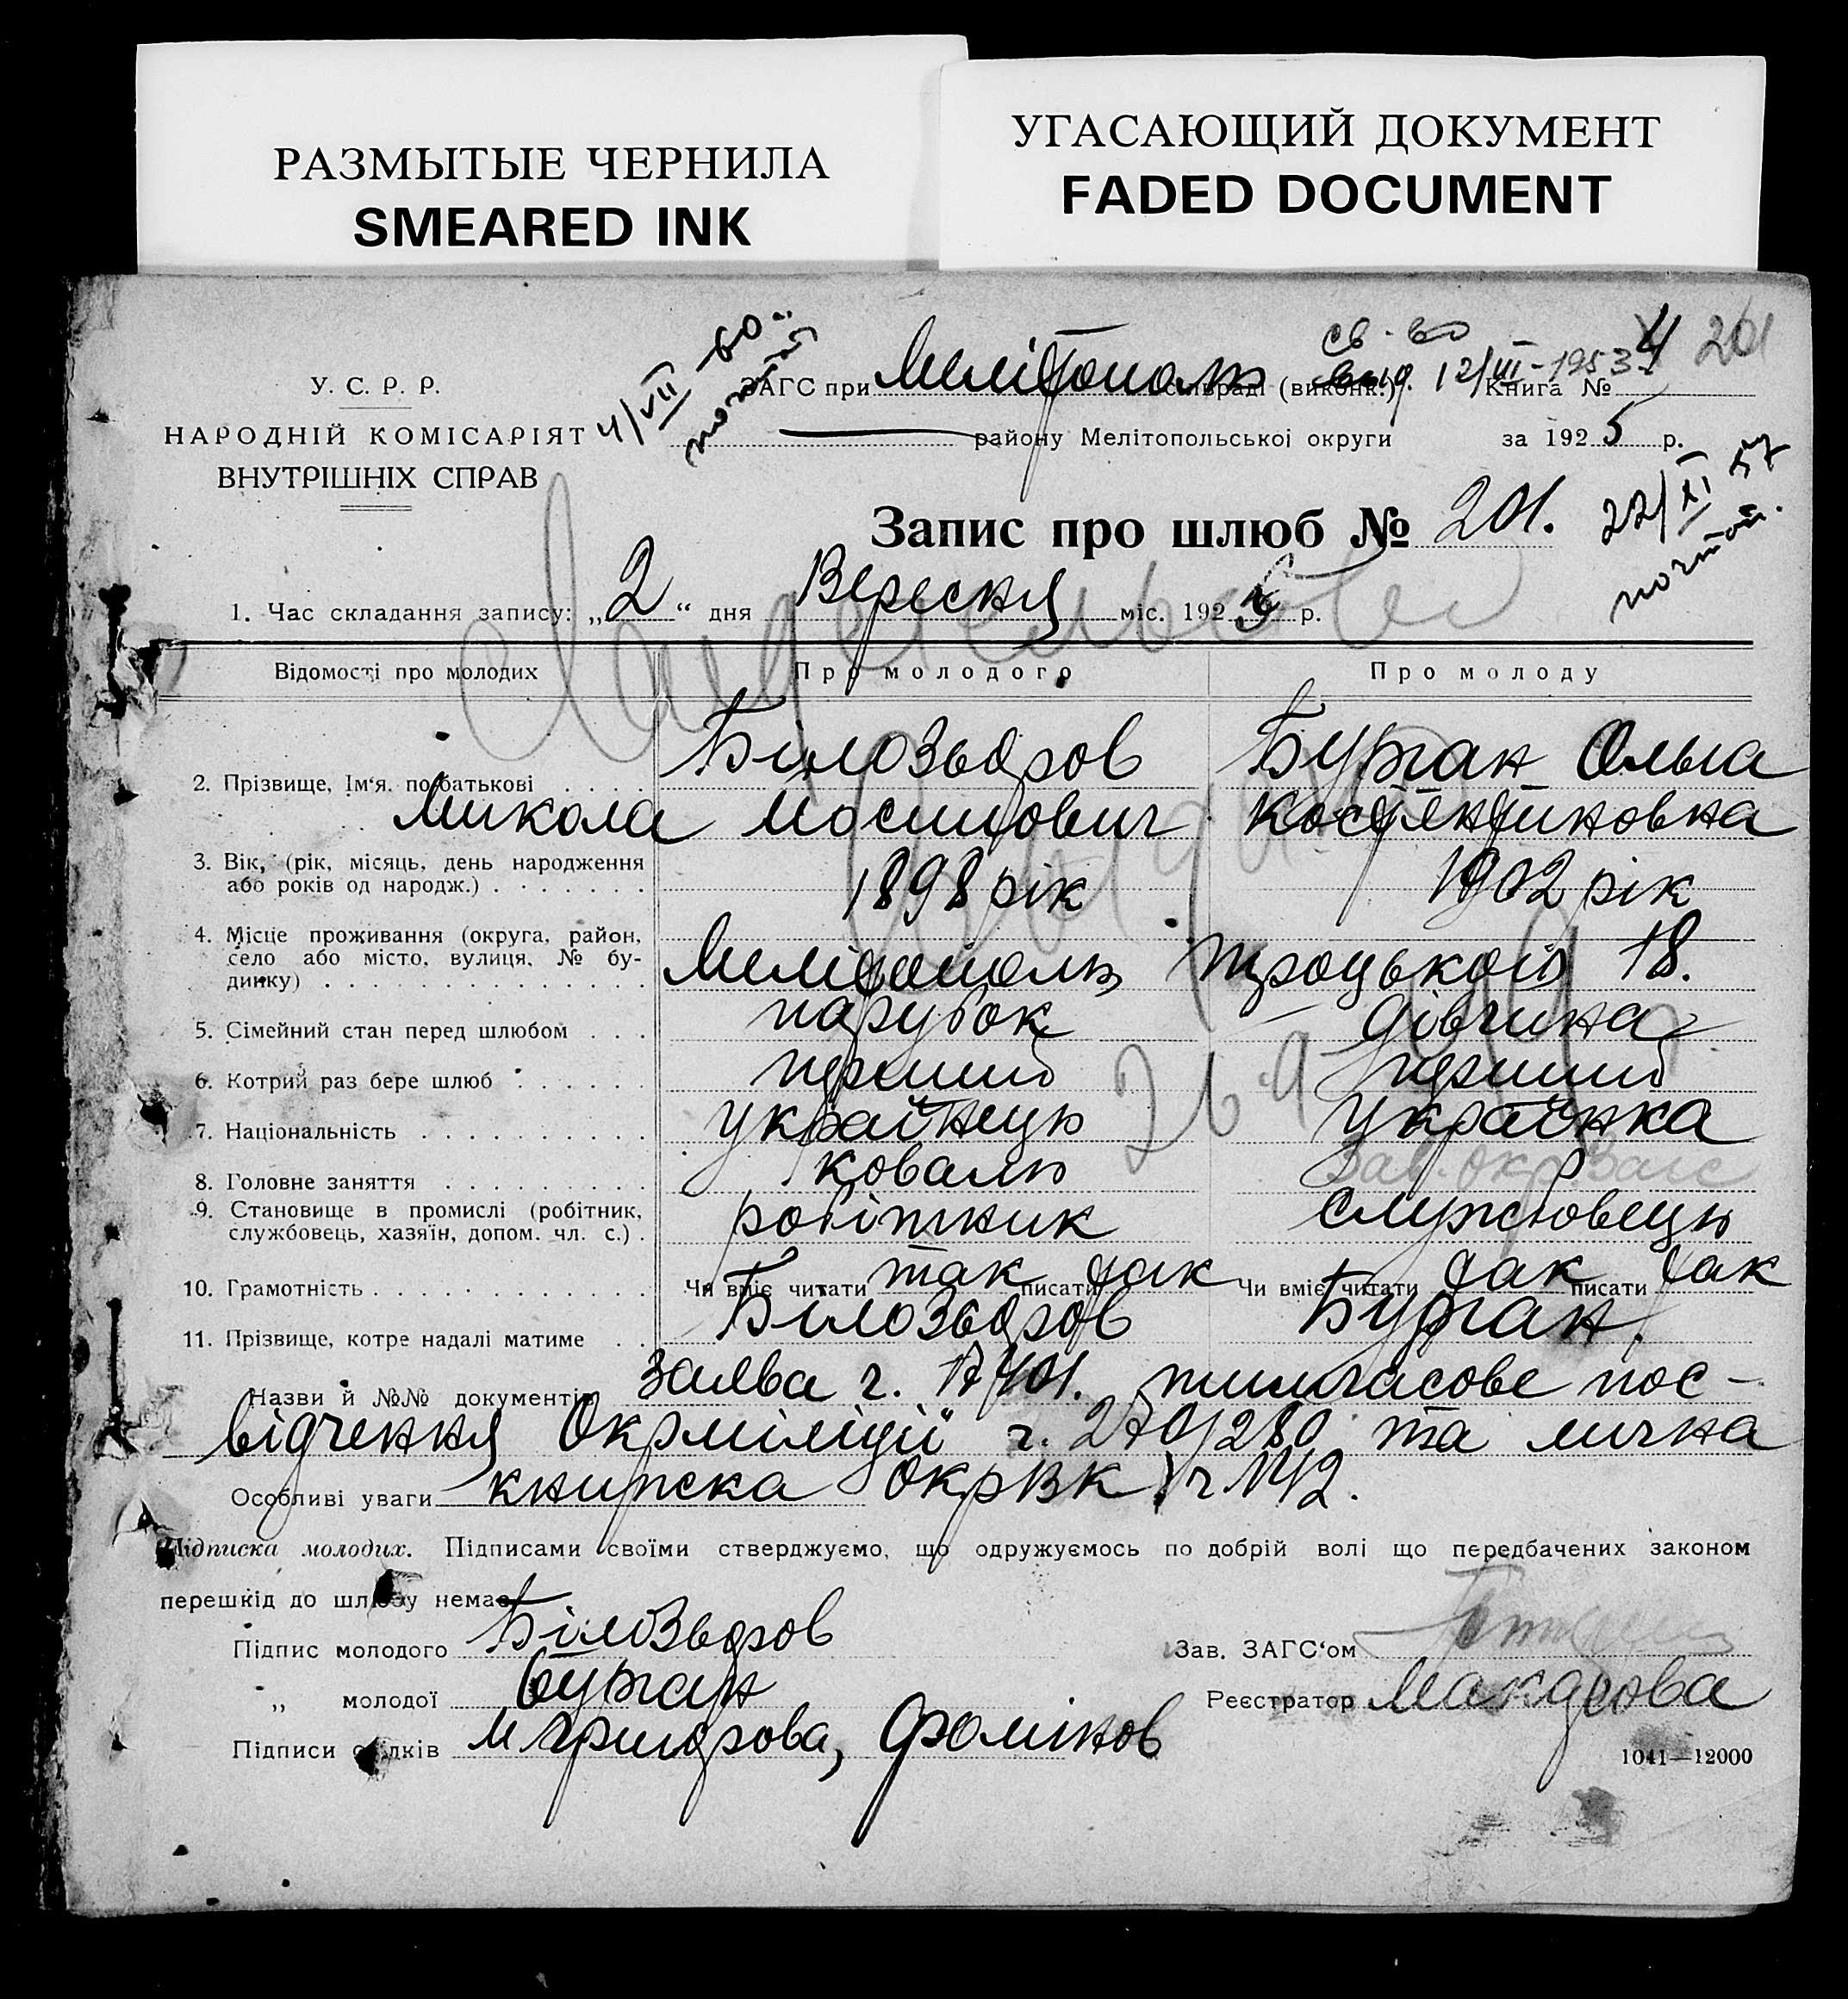 РАЗМЫТЫЕ ЧЕРНИЛА
SMEARED INK
УГАСАЮЩИЙ ДОКУМЕНТ
FADED DOCUMENT
У. С. Р. Р.
НАРОДНІЙ КОМІСАРІЯТ
ВНУТРІШНІХ СПРАВ
4/VII-60
св-во
выд. 12/III-1953
4 201
ЗАГС при Мелітополь сільраді (виконк.) Книга №
району Мелітопольської округи за 1925 р.
22/XI 57
Запис про шлюб № 201.
1. Час складання запису: „2“ дня Вересня міс. 1925 р.
Відомості про молодих Про молодого Про молоду
2. Прізвище, Ім‘я, по батькові Білозьоров Буржан Ольга
Микола Йосипович Костянтиновна
3. Вік, (рік, місяць, день народження
або років од народж.) 1898 рік 1902 рік
4. Місце проживання (округа, район,
село або місто, вулиця, № бу-
динку) Мелітополь, Троцького 18.
5. Сімейний стан перед шлюбом парубок дівчина
6. Котрий раз бере шлюб перший перший
7. Національність українець українка
8. Головне заняття коваль Зав. ОкрЗагс
9. Становище в промислі (робітник,
службовець, хазяїн, допом. чл. с.) робітник службовець
10. Грамотність Чи вміє читати так писати так Чи вміє читати так писати так
11. Прізвище, котре надалі матиме Білозьоров Буржан.
Назви й №№ документів Заява ч. 17401. тимчасове пос-
відчення Окрміліції ч. 270/280 та лична
Особливі уваги книжка ОкрВК ч 1142.
Підписка молодих. Підписами своїми стверджуємо, що одружуємось по добрій волі що передбачених законом
перешкід до шлюбу немає
Підпис молодого Білозьоров Зав. ЗАГС‘ом
„ молодої Буржан Реєстратор
Підписи свідків
1041—12000